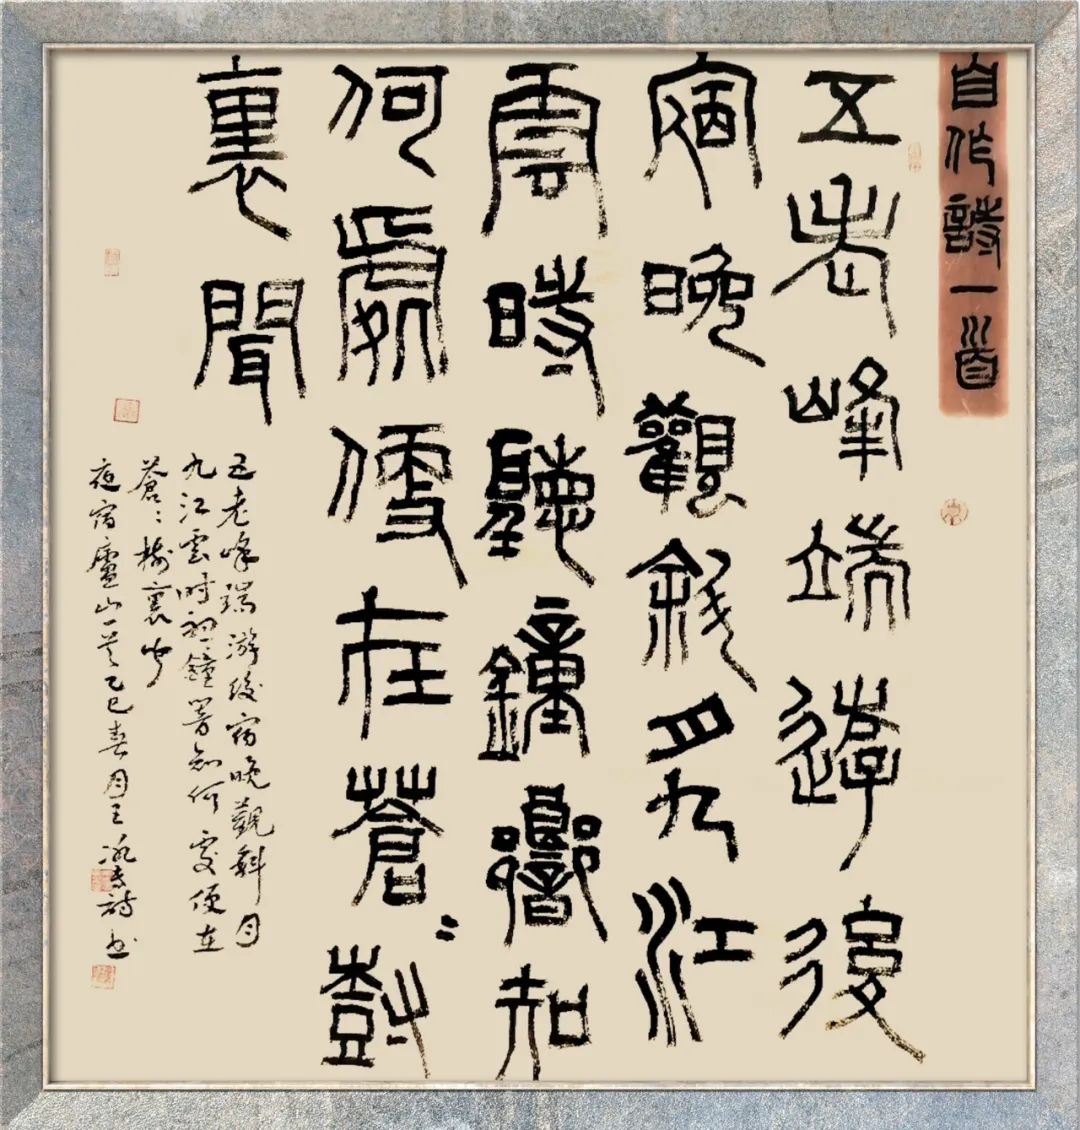 自作詩一首
五老峰端遊後
宿晚觀斜月九江
雲時聽鐘響知
何處便在蒼〻樹
裏聞
五老峰端游後宿晚觀斜月
九江雲時聽鐘響知何處便在
蒼〻樹裏聞
夜宿廬山一首乙巳春月王